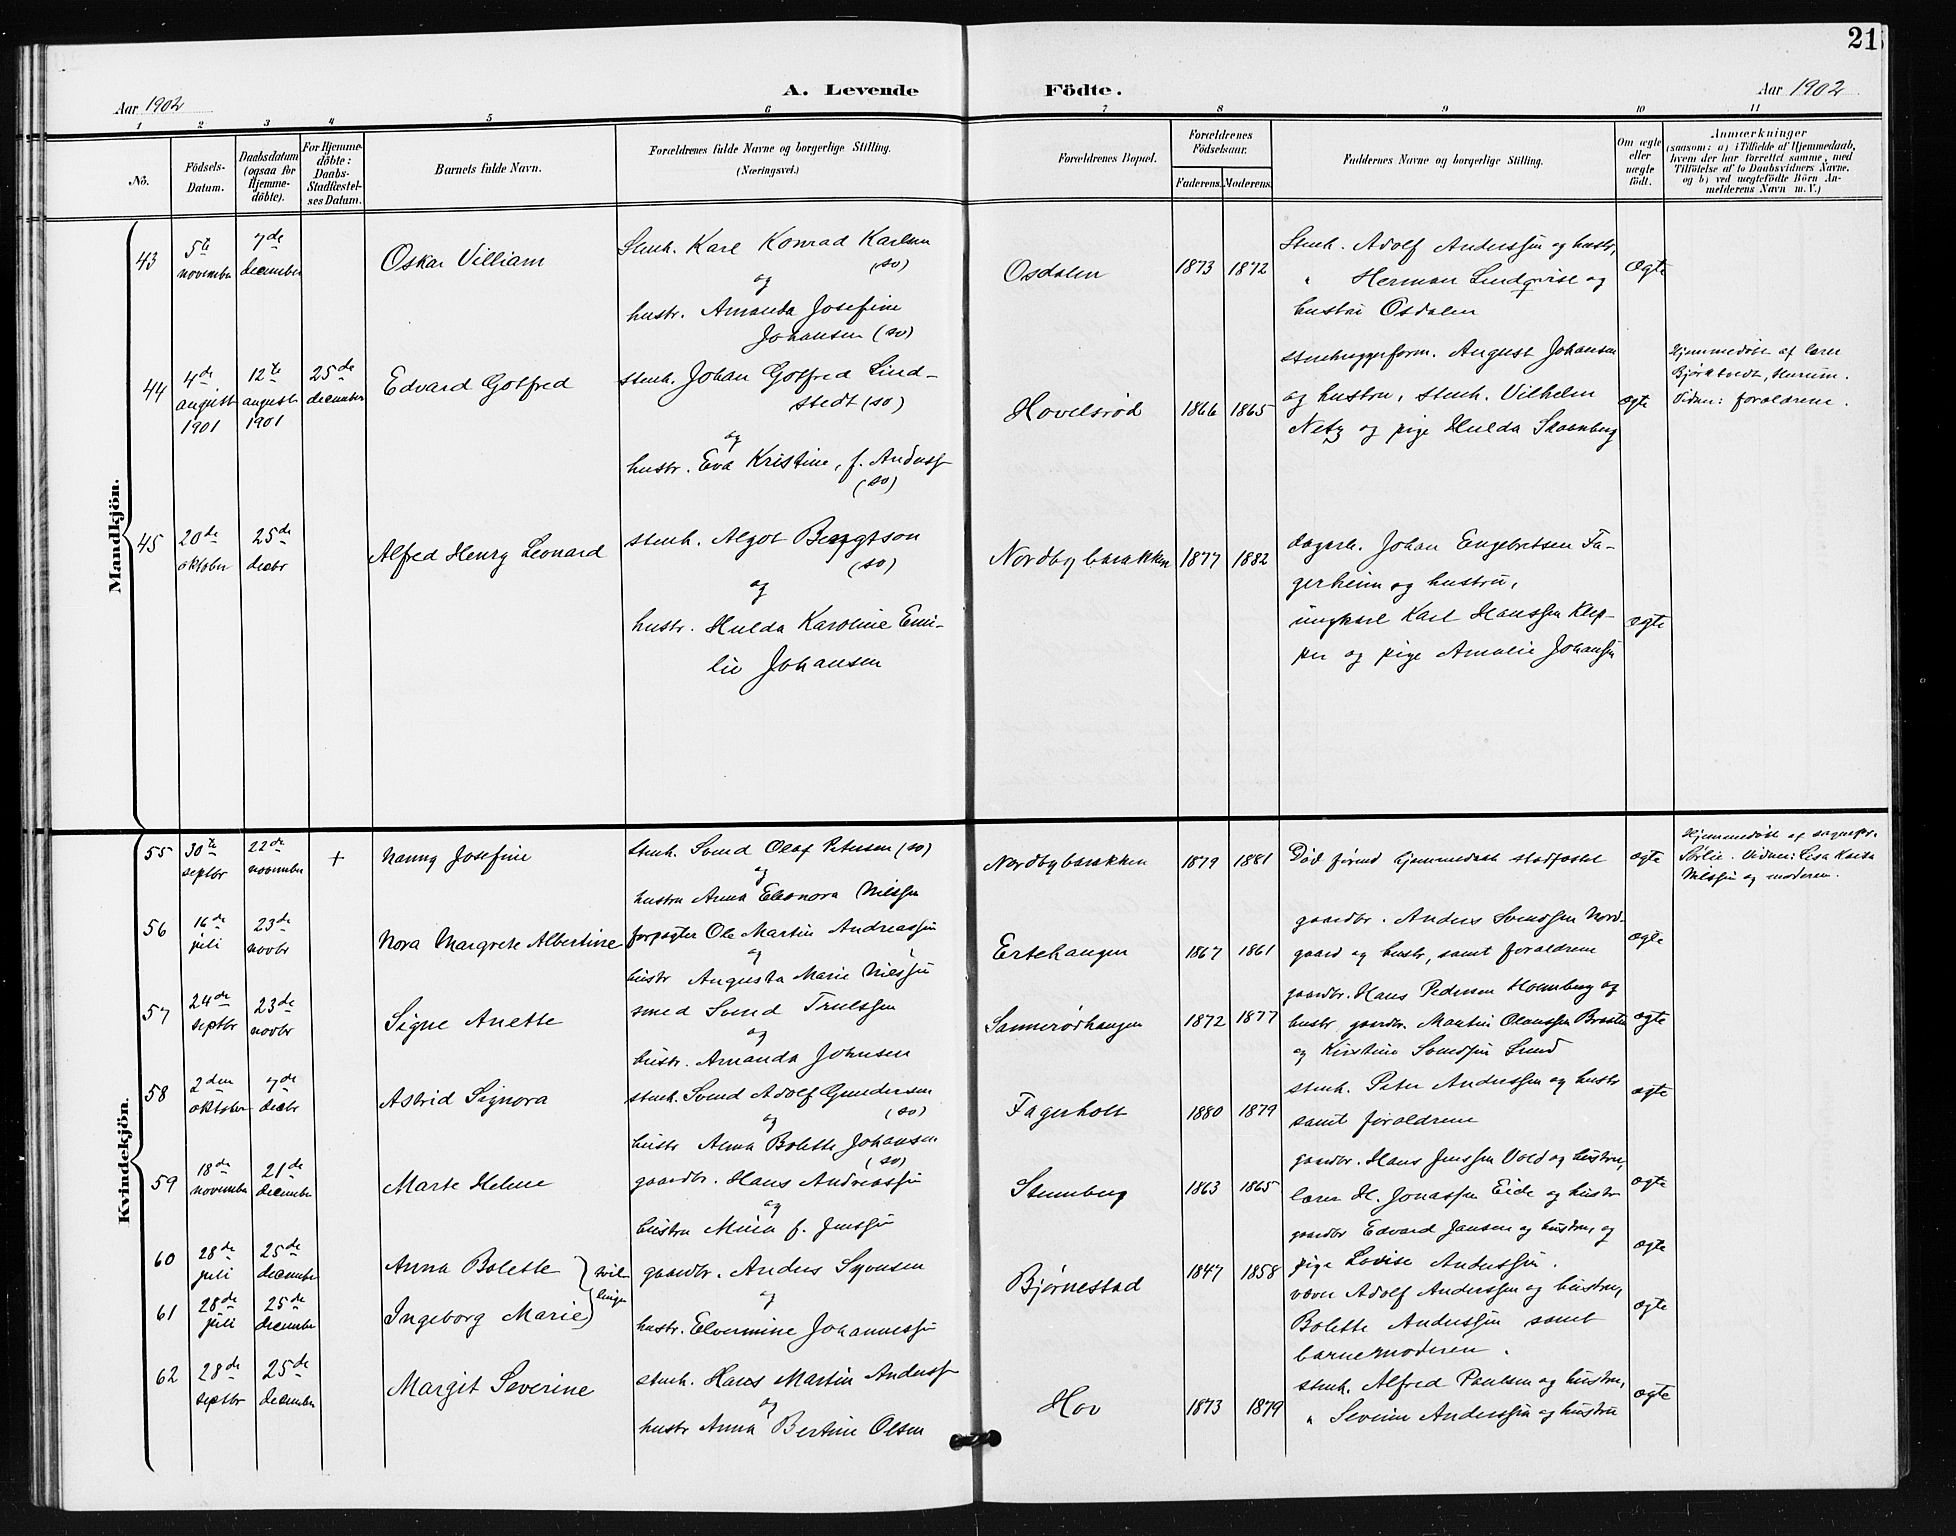 21
A. Levende Födte.
Aar 1902
Aar 1902
1 2 3 4 5 6 7 8 9 10 11
No.
Födsels-
Datum.
Daabsdatum
(ogsaa for
Hjemme-
döbte).
For Hjemme-
döbte:
Daabs-
Stadfæstel-
ses Datum.
Barnets fulde Navn.
Forældrenes fulde Navne og borgerlige Stilling.
(Næringsvei.)
Forældrenes Bopæl.
Forældrenes
Födselsaar.
Faderens. Moderens.
Faddernes Navne og borgerlige Stilling.
Om ægte
eller
uægte
födt.
Anmærkninger
(saasom: a) i Tilfælde af Hjemmedaab,
hvem der har forrettet samme, med
Tilföielse af to Daabsvidners Navne,
og b) ved uægtefödte Börn An-
melderens Navn m. V.)
Mandkjön.
43
5te
november
7de
december
Oskar Villiam
Stenh. Karl Konrad Karlsen
(so)
og
hustr. Amanda Josefine
Johansen (so)
Osdalen
1873 1872
Stenh. Adolf Anderssen og hustr,
" Herman Lindqvist og
hustru Osdalen
ægte
44
4de
august
1901
12te
august
1901
25de
december
Edvard Gotfred
stenh. Johan Gotfred Lind-
stedt (so)
og
hustr. Eva Kristine, f. Anderss
(so)
Hovelsrød
1866 1865
stenhuggerform. August Johansen
og hustru, stenh. Vilhelm
Netz og pige Hulda Skaanberg
ægte
Hjemmedøbt af lærer
Bjørktvedt, Hurum.
Vidner: forældrene.
45
20de
oktober
25de
decbr
Alfred Henry Leonard
stenh. Algot Bengtson
(so)
og
hustr. Hulda Karoline Emi-
lie Johansen
Nordby barakken
1877 1882
dagarb. Johan Engebretsen Fa-
gerheim og hustru,
ungkarl Karl Hanssen Klep-
per og pige Amalie Johanssen
ægte
Kvindekjön.
55
30te
septbr
22de
november
+
Nanny Josefine
stenh. Svend Olaf Petersen (so)
og
hustru Anna Eleonora Nilssen
Nordbybarakken
1879 1881
Død førend hjemmedaab stadfæstet
ægte
Hjemmedøbt af sognepr.
Sørlie. Vidner: Lisa Kaisa
Nilssen og moderen.
56
16de
juli
23de
novbr
Nora Margrete Albertine
forpagter Ole Martin Andreassen
og
hustr Augusta Marie Nilssen
Ertehaugen
1867 1861
gaardbr. Anders Svendsen Nord-
gaard og hustr, samt forældrene
ægte
57
24de
septbr
23de
novbr
Signe Anette
smed Svend Trulssen
og
hustr. Amanda Johnsen
Sannerødhaugen
1872 1877
gaardbr. Hans Pedersen Holmberg og
hustr gaardbr. Martin Olaussen Braaten
og Kirstine Svendsen Lund
ægte
58
2den
oktober
7de
decbr
Astrid Signora
stenh. Svend Adolf Gundersen
(so)
og
hustr Anna Bolette Johansen
(so)
Fagerholt
1880 1879
stenh. Peter Anderssen og hustr
samt forældrene
ægte
59
18de
november
21de
december
Marte Helene
gaardbr. Hans Andreassen
og
hustru Mina f. Jenssen
Stumberg
1863 1865
gaardbr. Hans Jenssen Vold og hustru,
lærer H. Jonassen Eide og hustr
ægte
60
28de
juli
25de
december
Anna Bolette
tvil-
linger
gaardbr. Anders Syvensen
og
hustr. Elvermine Johannessen
Bjørnestad
1847 1858
gaardbr Edvard Jansen og hustru, og
pige Lovise Anderssen.
ægte
61
28de
juli
25de
december
Ingeborg Marie
væver Adolf Anderssen og hustru,
Bolette Anderssen samt
barnemoderen.
ægte
62
28de
septbr
25de
december
Margit Severine
stenh. Hans Martin Anderss
og
hustr Anna Bertine Olsen
Hov
1873 1879
stenh. Alfred Paulsen og hustru,
" Severin Anderssen og hustru
ægte